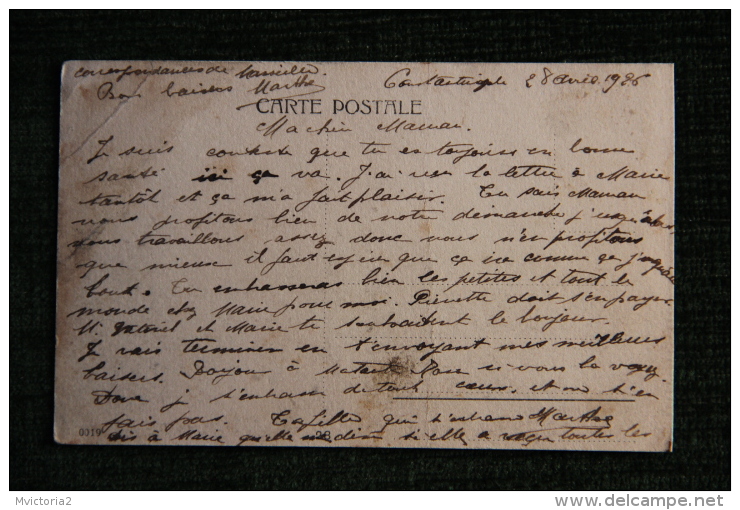 correspondances de famille.
Bon baisers Marthe
Constantinople 28 avril 1926
CARTE POSTALE
Ma chère Maman.
Je suis contente que tu es toujours en bonne
santé ici ça va. J'ai reçu la lettre à Marie
tantôt et ça m'a fait plaisir. Tu sais Maman
nous profitons bien de notre dimanche
nous travaillons assez donc nous n'en profitons
que mieux il faut espérer que ça ira comme ça jusqu'au
bout. Tu embrasseras bien les petites et tout le
monde chez Marie pour moi. Pierrette doit s'en payer
M. et Marie te souhaitent le bonjour.
Je vais terminer en t'envoyant mes meilleurs
baisers. Bonjour à si vous la voyez
Donc je t'embrasse de tout cœur, et ne t'en
fais pas. Ta fille qui t'embrasse Marthe
0019
dis à Marie qu'elle me dise si elle a reçu toutes les
Mvictoria2
www.delcampe.net